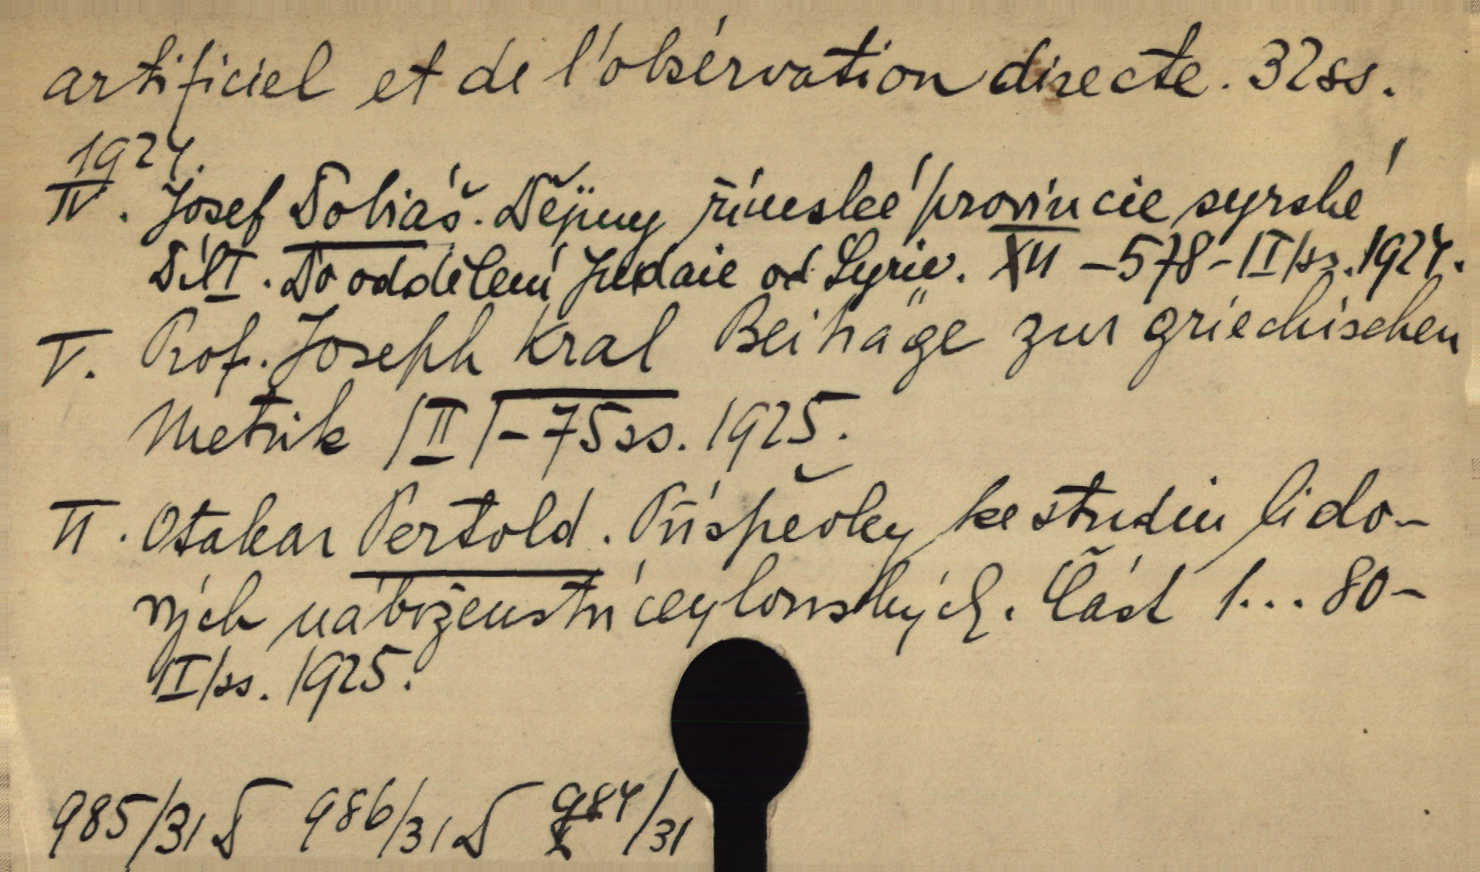 artificiel et de l'obsérvation directe. 32ss.
1924.
IV. Josef Dobiáš. Dějiny římské provincie syrské
Díl I. Do oddělení Judaie od Syrie. XII – 578 – |I|ss. 1924.
V. Prof. Joseph Kral Beiträge zur griechischen
Metrik |II| – 75ss. 1925.
VI. Otakar Pertold. Příspěvky ke studiu lido-
vých náboženství ceylonských. Část 1... 80 –
|I|ss. 1925.
985/31 D 986/31 D 987/31